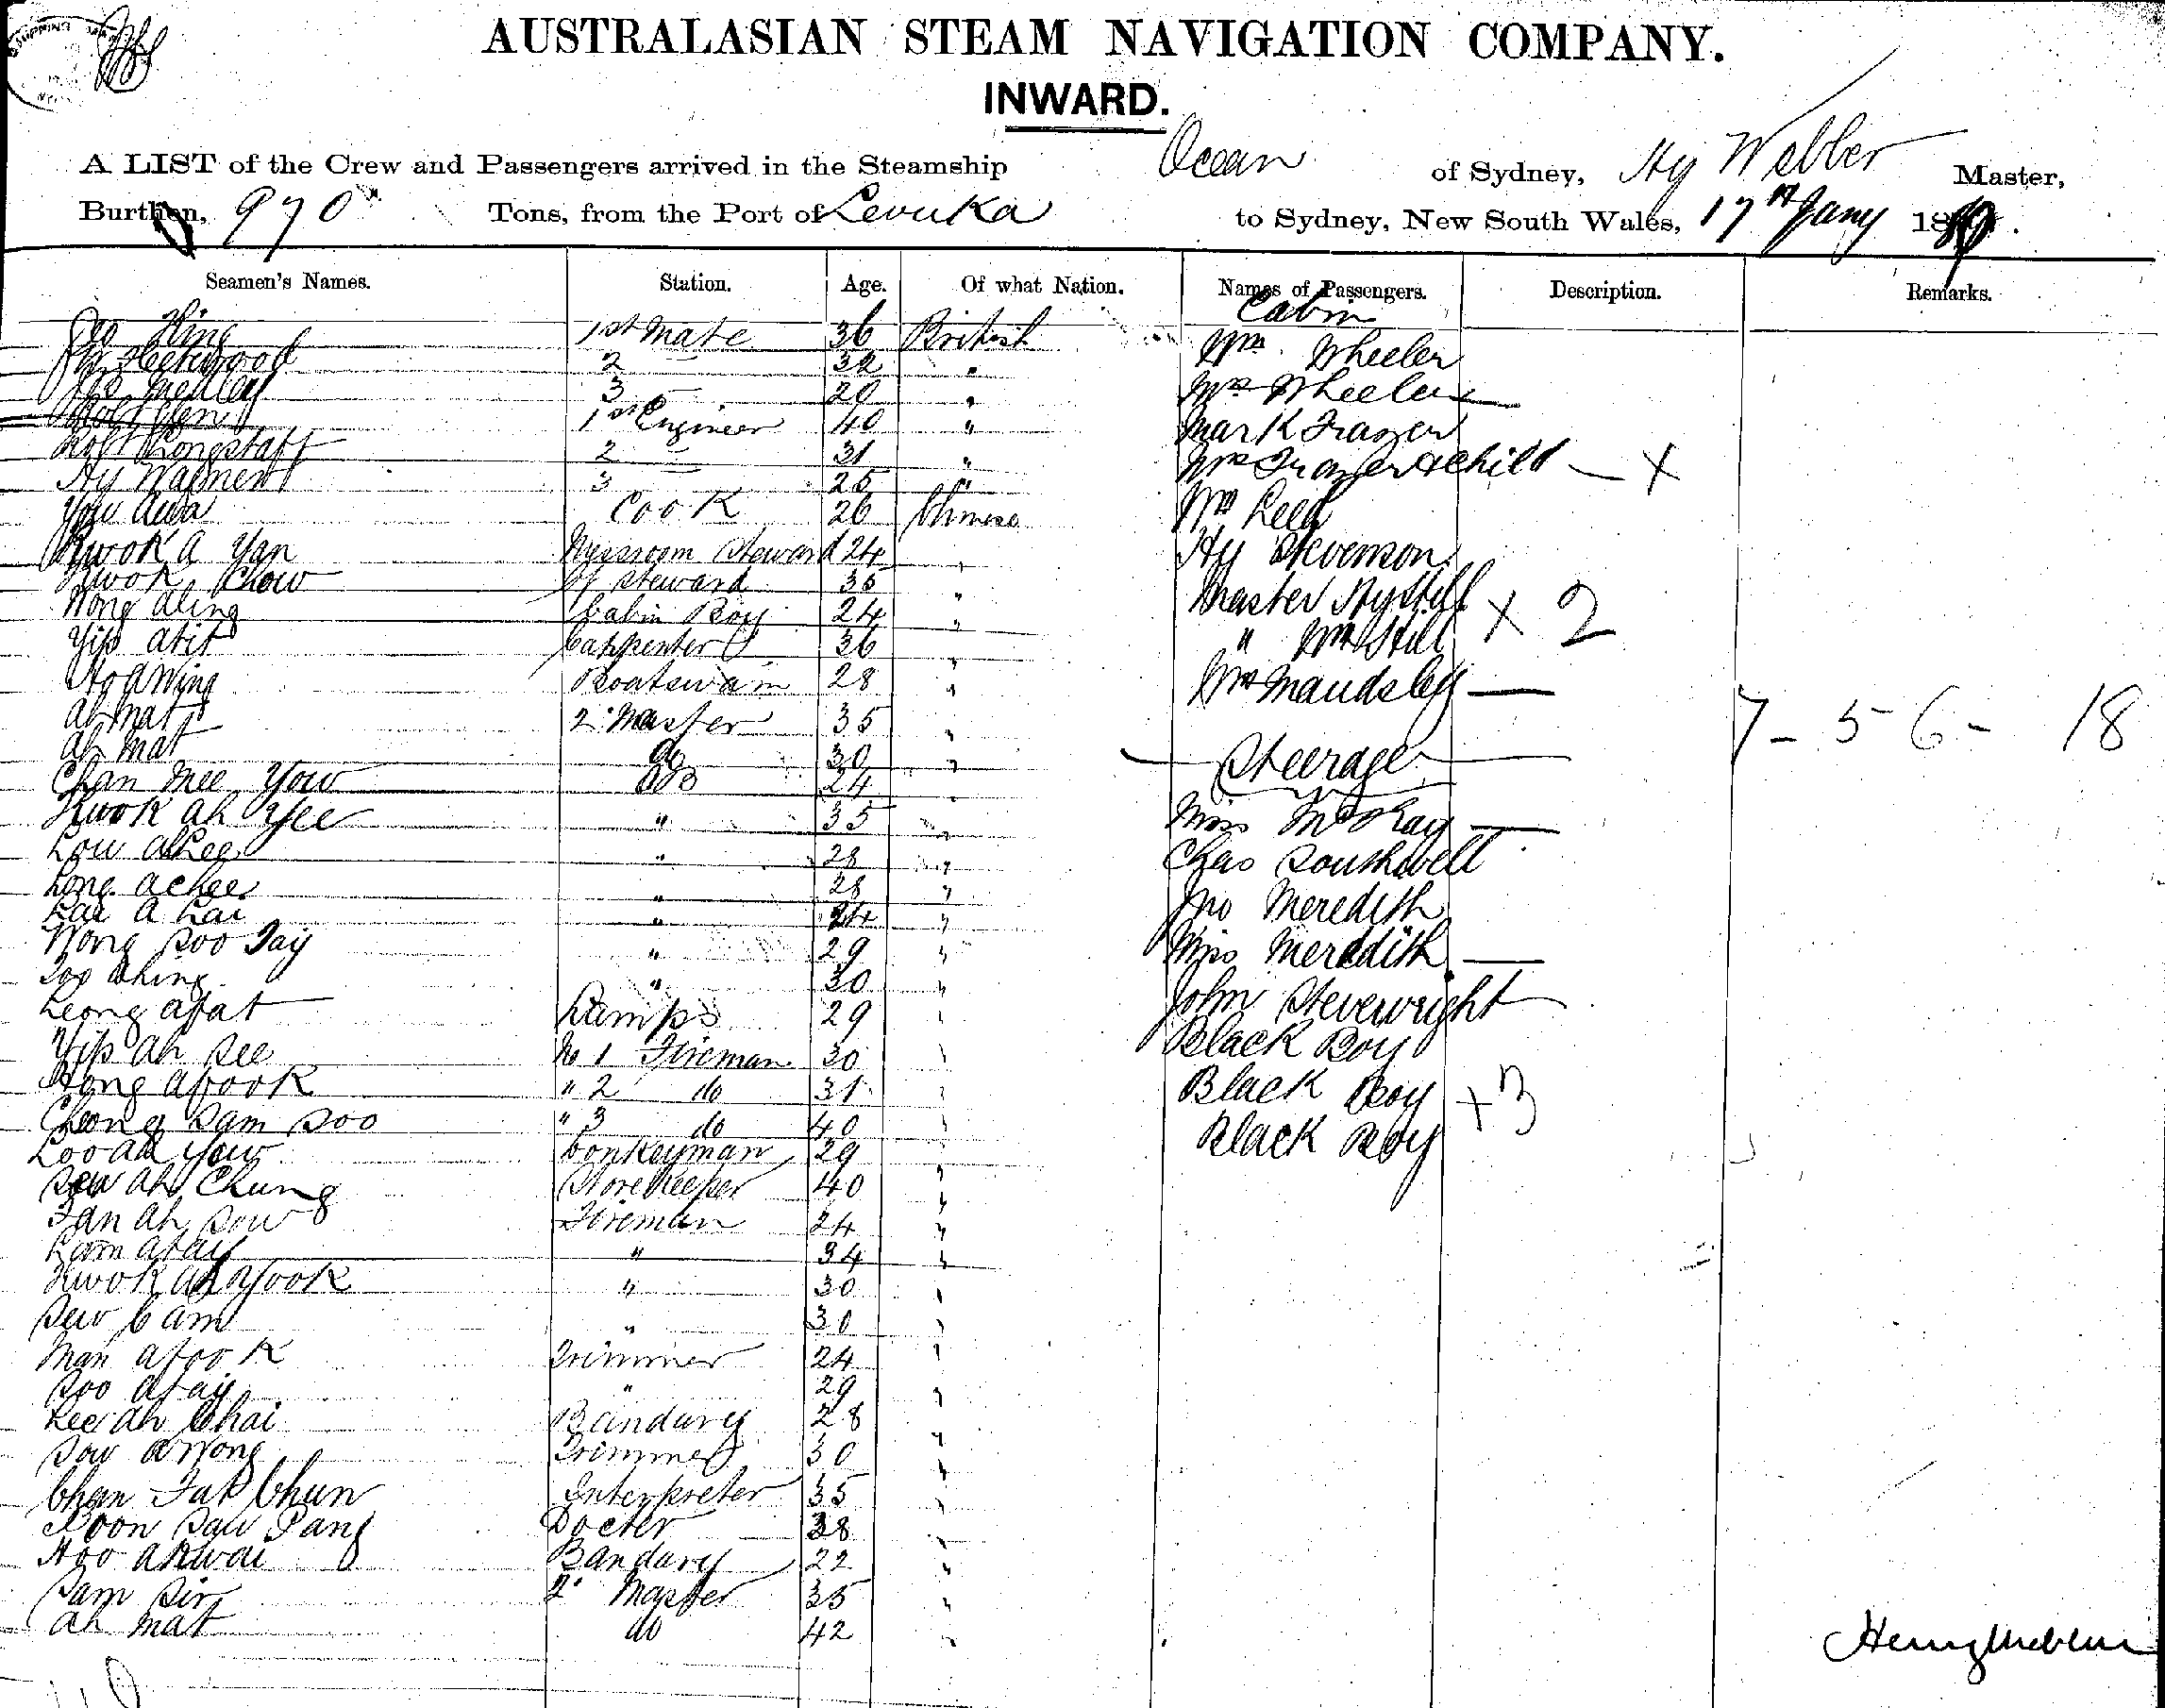 AUSTRALASIAN STEAM NAVIGATION COMPANY.
INWARD.
A LIST of the Crew and Passengers arrived in the Steamship Ocean of Sydney, Hy Webber Master,
Burthen, 970 Tons, from the Port of Levuka to Sydney, New South Wales, 17th Jany 18
Seamen's Names. Station. Age. Of what Nation. Names of Passengers. Description. Remarks.
Cabin
King 1st Mate 36 British Wm Wheeler
Fleetwood 2 — 32 " Mrs Wheeler —
3 — 20 " Mark Frazer
1st Engineer 40 " Mrs Frazer & child — x
Robt Longstaff 2 — 31 " Mr Reed
Hy 3 25 " Hy Stevenson
You Awa Cook 26 Chinese Master Hy Still
Kwok A Yan Messroom Steward 24 " " Wm Still x 2
Kwok Chow Cf Steward 36 " Mrs Maudsley —
Wong Aling Cabin Boy 24 "
Yip Atit Carpenter 36 "
Ho A Wing Boatswain 28 " 7 - 5 - 6 - 18
Ah Mat 2 Master 35 " Steerage
Ah Mat do 30 "
Chan Mee Yow do 24 " Miss McKay —
Kwok Ah Yee " 35 " Chas Southwell
Low Akee " 28 " Jno Meredith
Long Achee " 28 " Miss Meredith —
Lai A Lai " 24 " John
Wong Soo Tay " 29 " Black Boy
Soo Ching " 30 " Black Boy x 3
Leong Afat Lamps 29 " Black Boy
Yip Ah See No 1 Fireman 30 "
Hong Afook " 2 do 31 "
Cheong Sam Soo " 3 do 40 "
Loo Ah Yow Donkeyman 29 "
Sew Ah Chung Storekeeper 40 "
Fan Ah Sow Fireman 24 "
Lam Afay " 34 "
Kwok Ah Yook " 30 "
Sew Cam " 30 "
Man Afook Trimmer 24 "
Soo Afay " 29 "
Lee Ah Chai Bandary 28 "
Sow A Wong Trimmer 30 "
Chan Fat Chun Interpreter 35 "
Boon Saw Pang Docter 38 "
Hoo Akwai Bandary 22 "
Sam Sin 2 Master 35 "
Ah Mat do 42 "
Henry Webber